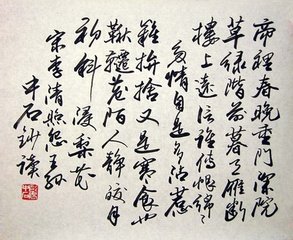 帝裡春晚重門深院
草綠階前暮天雁斷
樓上遠信誰傳恨綿綿
多情自是多沾惹
難拚捨又是寒食也
鞦韆巷陌人靜皎月
初斜 浸梨花
宋李清照怨王孫
中石鈔讀